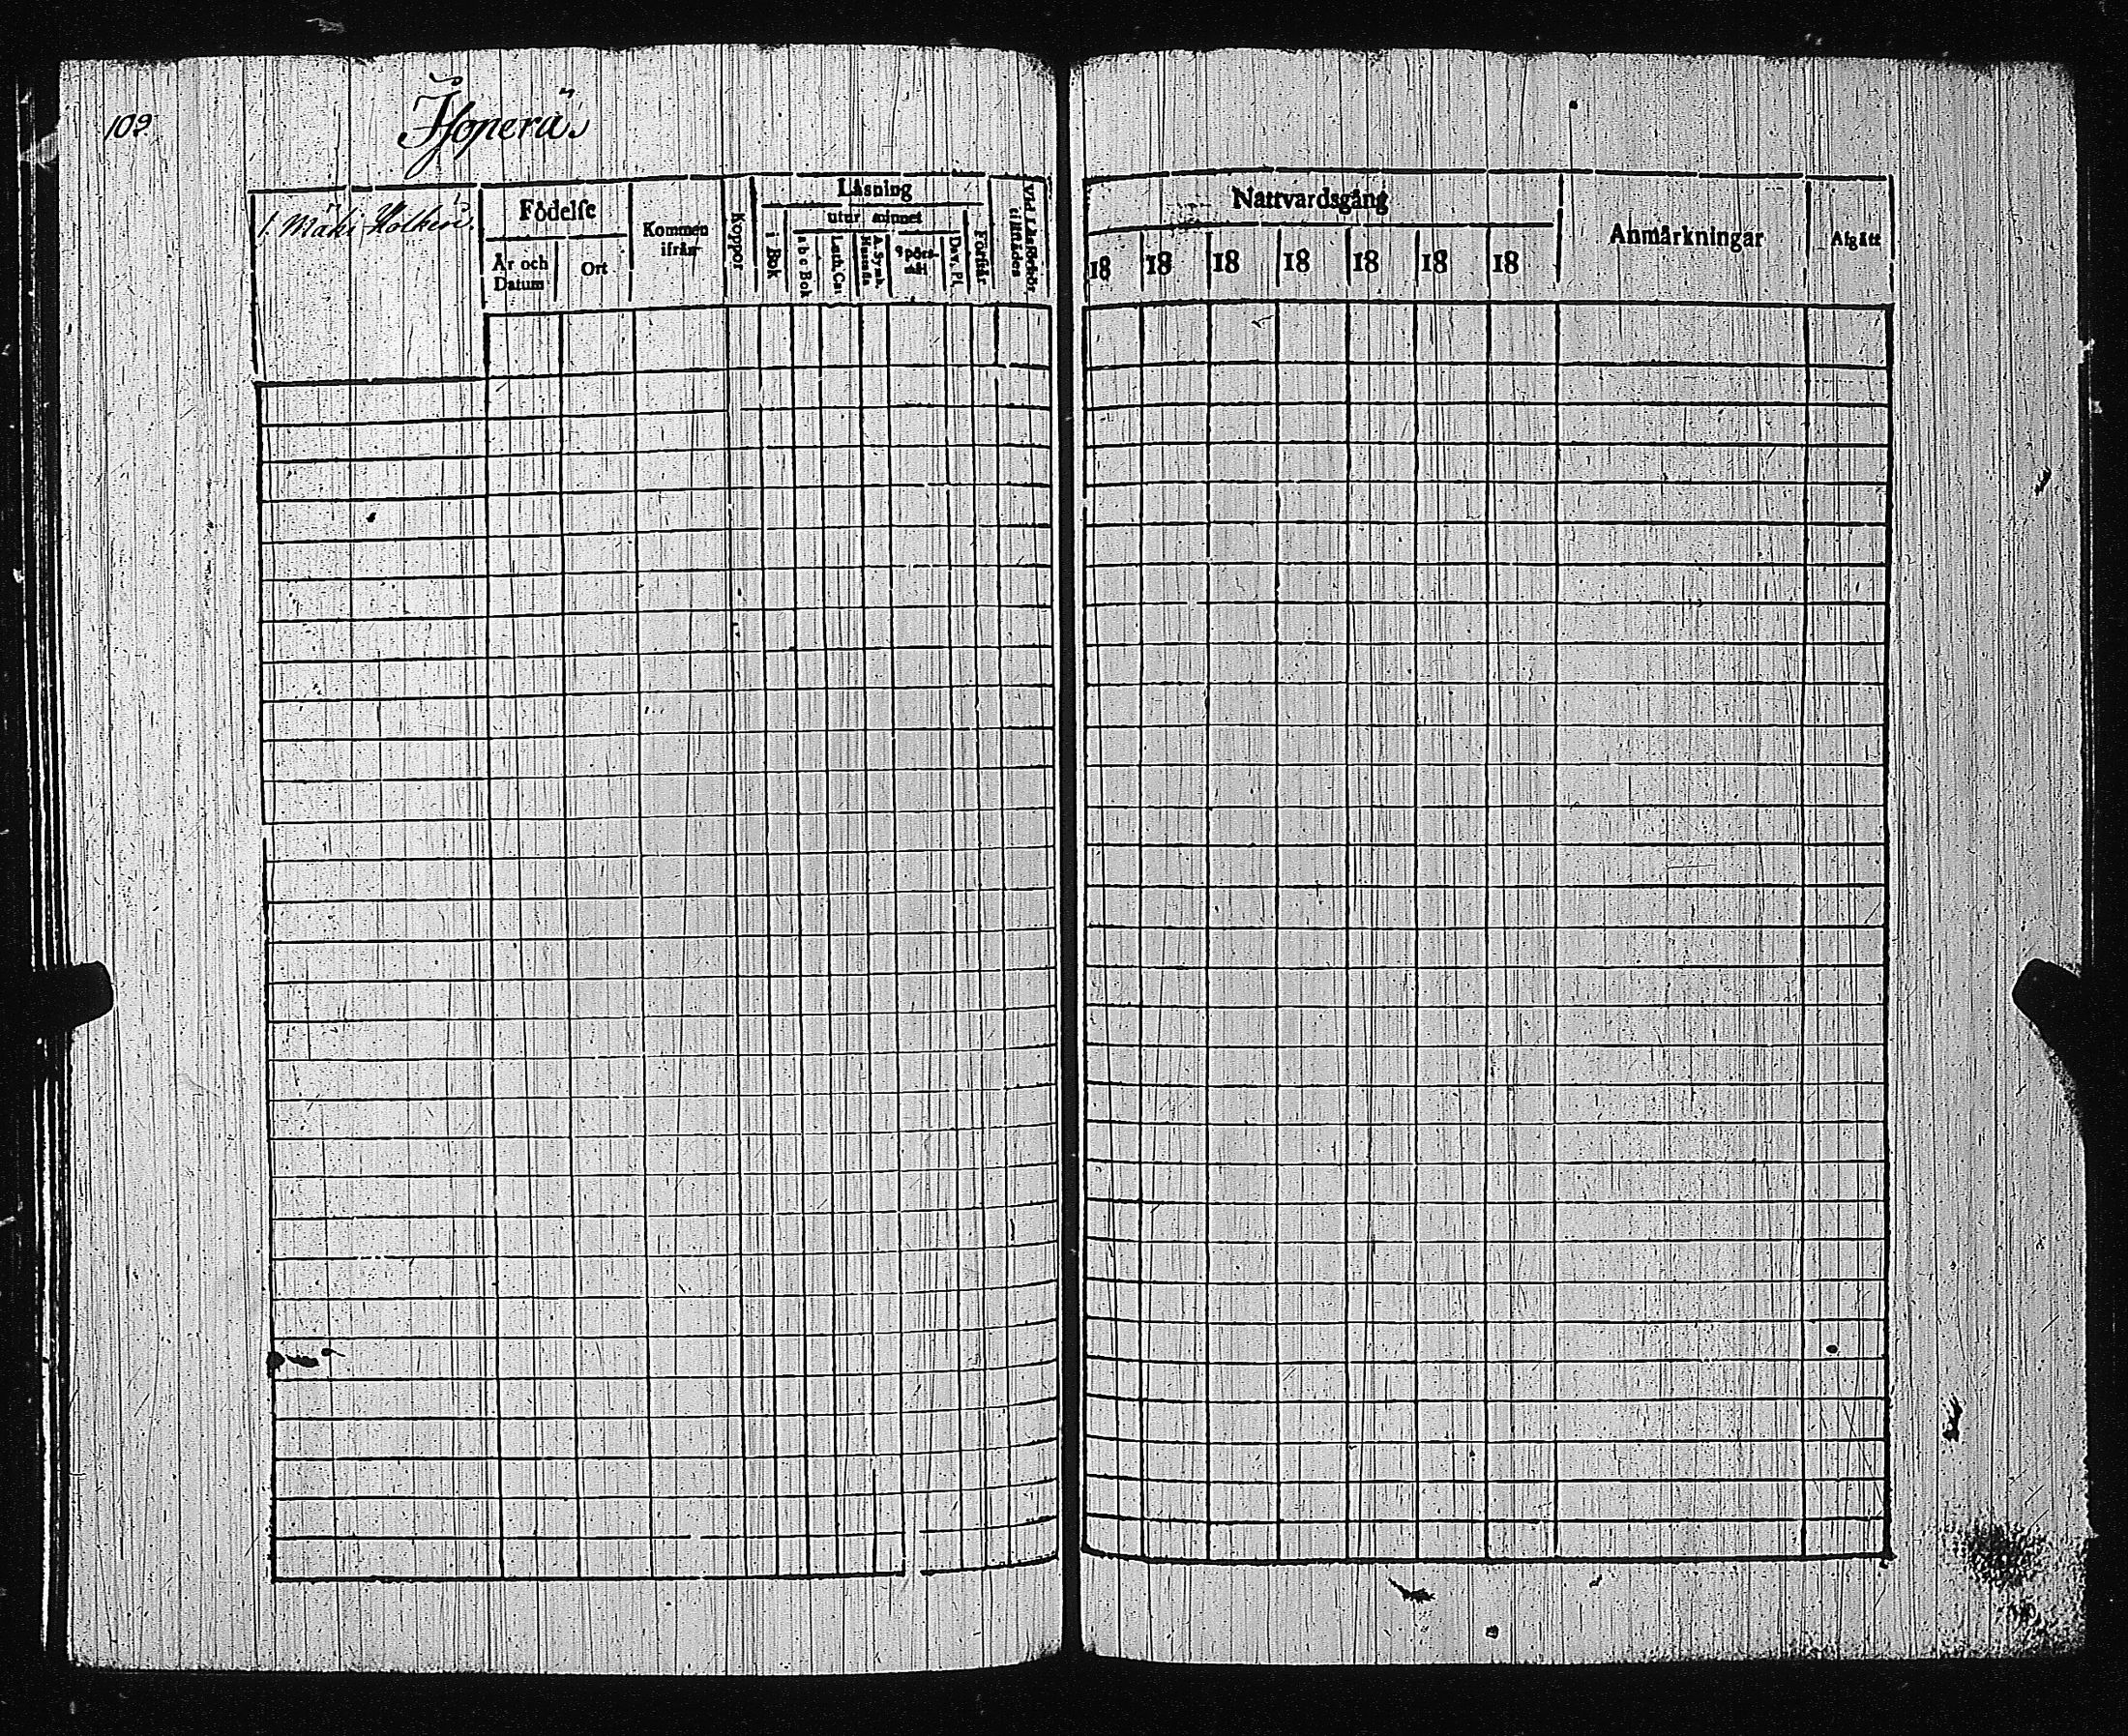 109
Isoperä
1. Mäki Holkeri.
Födelse
År och Datum
Ort
Kommen ifrån
Koppor
Läsning
i Bok
utur minnet
a b c Bok
Luth. Cat
A. Symb. Hustafla
Spörsmål
Dav. Ps.
Förstår
Vid Läsförhör tillstädes
Nattvardsgång
18 18 18 18 18 18 18
Anmärkningar
Afgått